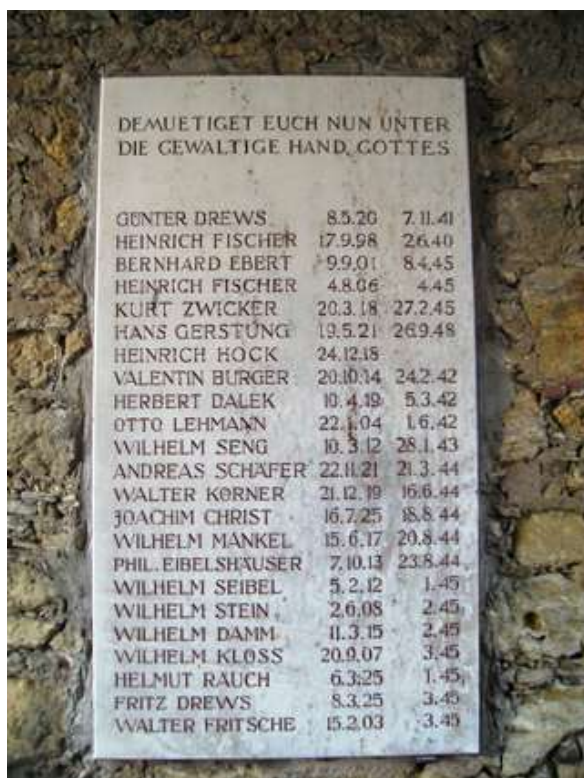 DEMUETIGET EUCH NUN UNTER
DIE GEWALTIGE HAND GOTTES
GÜNTER DREWS 8.5.20 7.11.41
HEINRICH FISCHER 17.9.98 2.6.40
BERNHARD EBERT 9.9.01 8.4.45
HEINRICH FISCHER 4.8.06 4.45
KURT ZWICKER 20.3.18 27.2.45
HANS GERSTUNG 19.5.21 26.9.48
HEINRICH HOCK 24.12.18
VALENTIN BURGER 20.10.14 24.2.42
HERBERT DALEK 10.4.19 5.3.42
OTTO LEHMANN 22.1.04 1.6.42
WILHELM SENG 10.3.12 28.1.43
ANDREAS SCHÄFER 22.11.21 21.3.44
WALTER KÖRNER 21.12.19 16.6.44
JOACHIM CHRIST 16.7.25 18.8.44
WILHELM MANKEL 15.6.17 20.8.44
PHIL. EIBELSHÄUSER 7.10.13 23.8.44
WILHELM SEIBEL 5.2.12 1.45
WILHELM STEIN 2.6.08 2.45
WILHELM DAMM 11.3.15 2.45
WILHELM KLOSS 20.9.07 3.45
HELMUT RAUCH 6.3.25 1.45
FRITZ DREWS 8.3.25 3.45
WALTER FRITSCHE 15.2.03 3.45